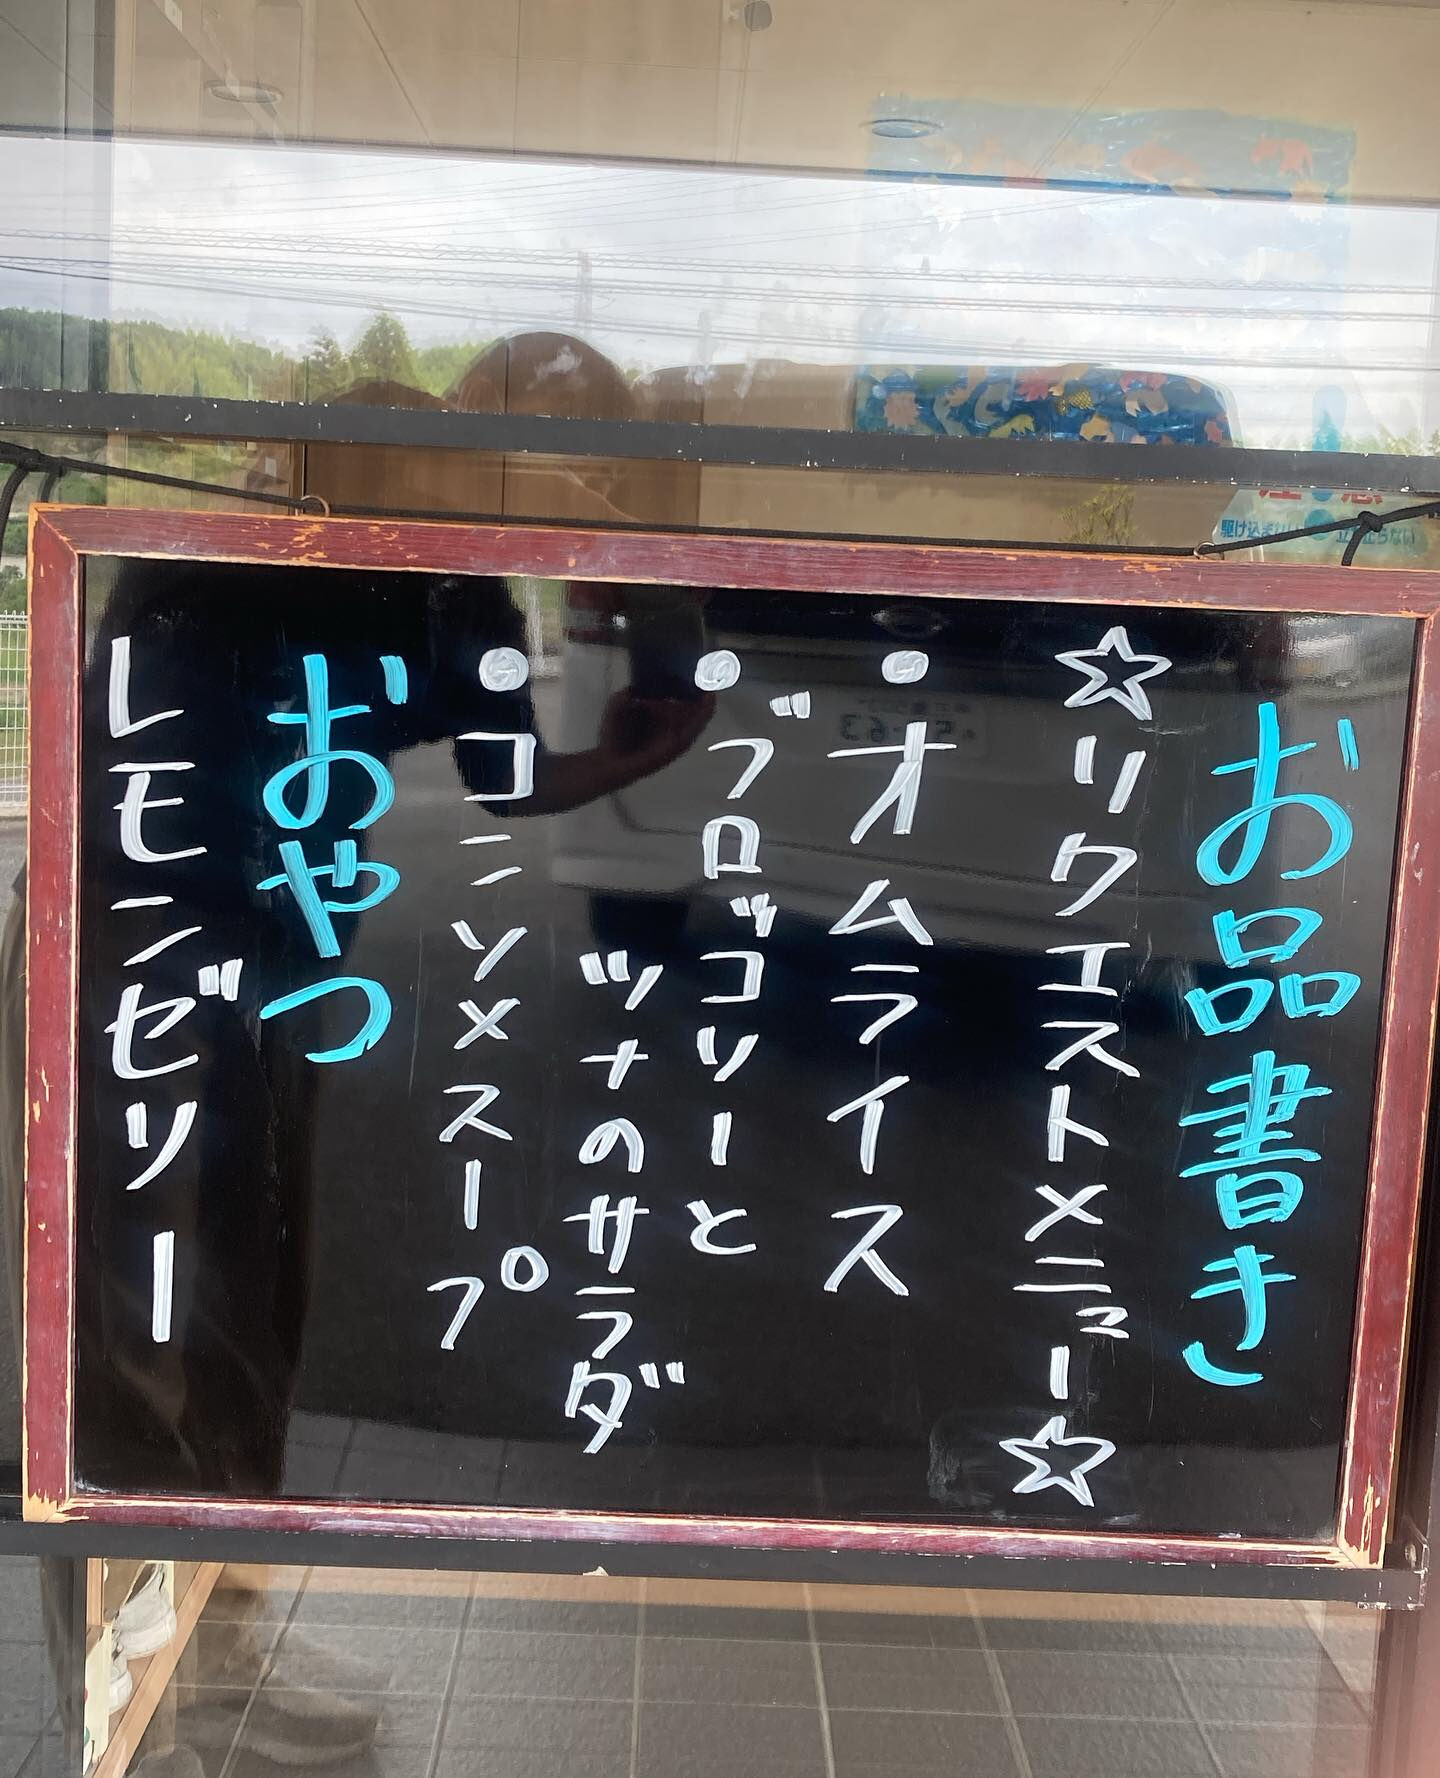 お品書き
☆リクエストメニュー☆
・オムライス
・ブロッコリーと
ツナのサラダ
・コンソメスープ
おやつ
レモンゼリー